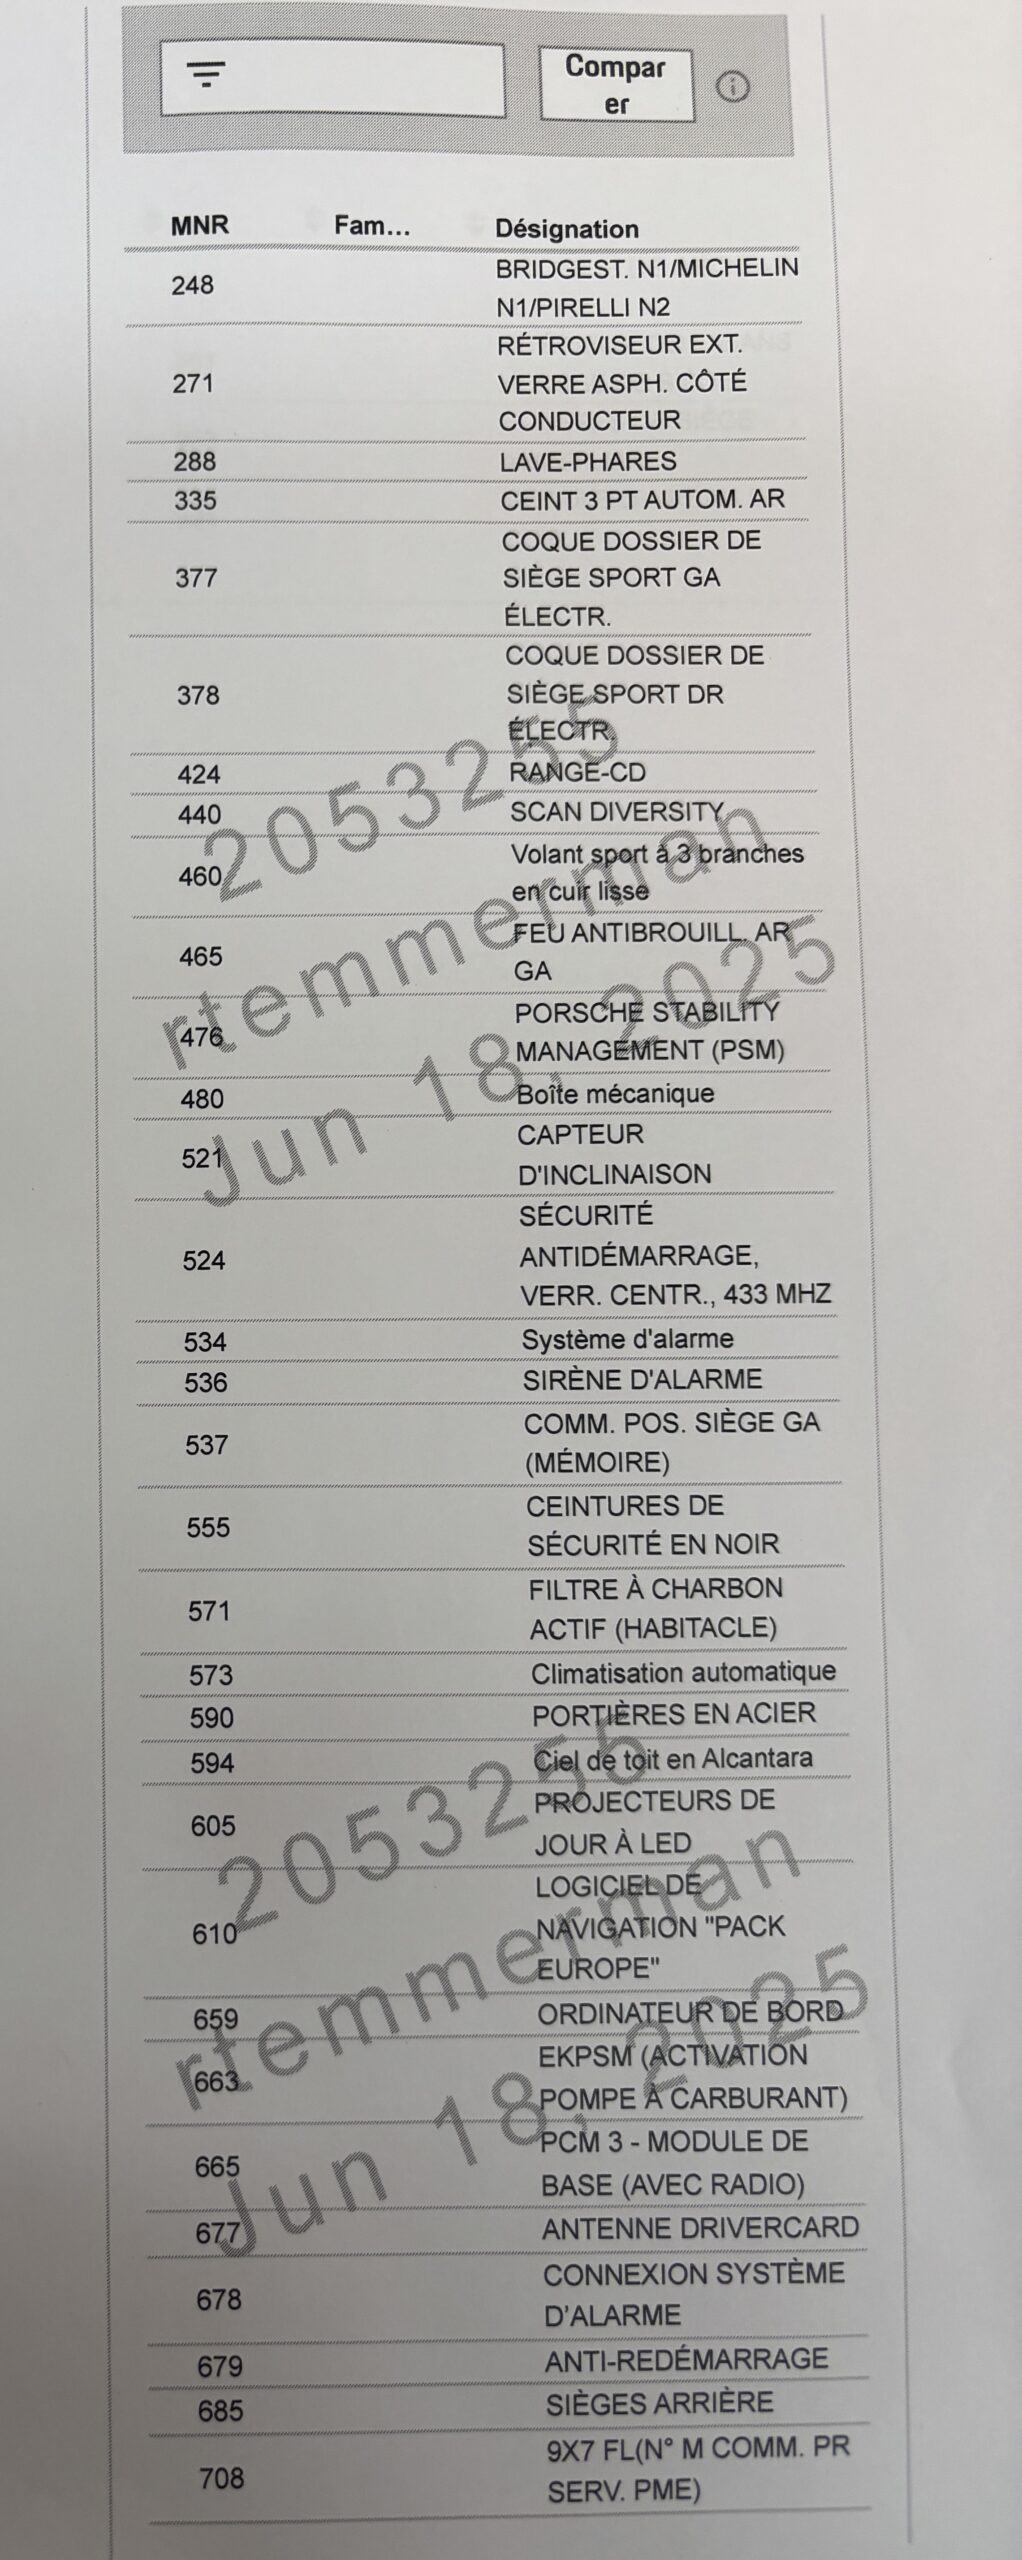 Compar
er
MNR Fam... Désignation
248 BRIDGEST. N1/MICHELIN
N1/PIRELLI N2
271 RÉTROVISEUR EXT.
VERRE ASPH. CÔTÉ
CONDUCTEUR
288 LAVE-PHARES
335 CEINT 3 PT AUTOM. AR
377 COQUE DOSSIER DE
SIÈGE SPORT GA
ÉLECTR.
378 COQUE DOSSIER DE
SIÈGE SPORT DR
ÉLECTR.
424 RANGE-CD
440 SCAN DIVERSITY
460 Volant sport à 3 branches
en cuir lisse
465 FEU ANTIBROUILL. AR
GA
476 PORSCHE STABILITY
MANAGEMENT (PSM)
480 Boîte mécanique
521 CAPTEUR
D'INCLINAISON
524 SÉCURITÉ
ANTIDÉMARRAGE,
VERR. CENTR., 433 MHZ
534 Système d'alarme
536 SIRÈNE D'ALARME
537 COMM. POS. SIÈGE GA
(MÉMOIRE)
555 CEINTURES DE
SÉCURITÉ EN NOIR
571 FILTRE À CHARBON
ACTIF (HABITACLE)
573 Climatisation automatique
590 PORTIÈRES EN ACIER
594 Ciel de toit en Alcantara
605 PROJECTEURS DE
JOUR À LED
610 LOGICIEL DE
NAVIGATION "PACK
EUROPE"
659 ORDINATEUR DE BORD
663 EKPSM (ACTIVATION
POMPE À CARBURANT)
665 PCM 3 - MODULE DE
BASE (AVEC RADIO)
677 ANTENNE DRIVERCARD
678 CONNEXION SYSTÈME
D'ALARME
679 ANTI-REDÉMARRAGE
685 SIÈGES ARRIÈRE
708 9X7 FL(N° M COMM. PR
SERV. PME)
2053255
rtemmerman
Jun 18, 2025
2053255
rtemmerman
Jun 18, 2025